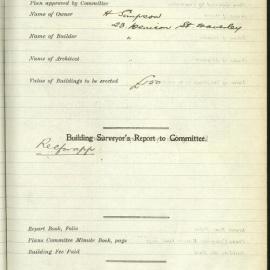 Plan approved by Committee
Name of Owner H Simpson
23 Denison St Waverley
Name of Builder "
Name of Architect "
Value of Buildings to be erected £
Building Surveyor's Report to Committee.
Report Book, Folio
Plans Committee Minute Book, page
Building Fee Paid